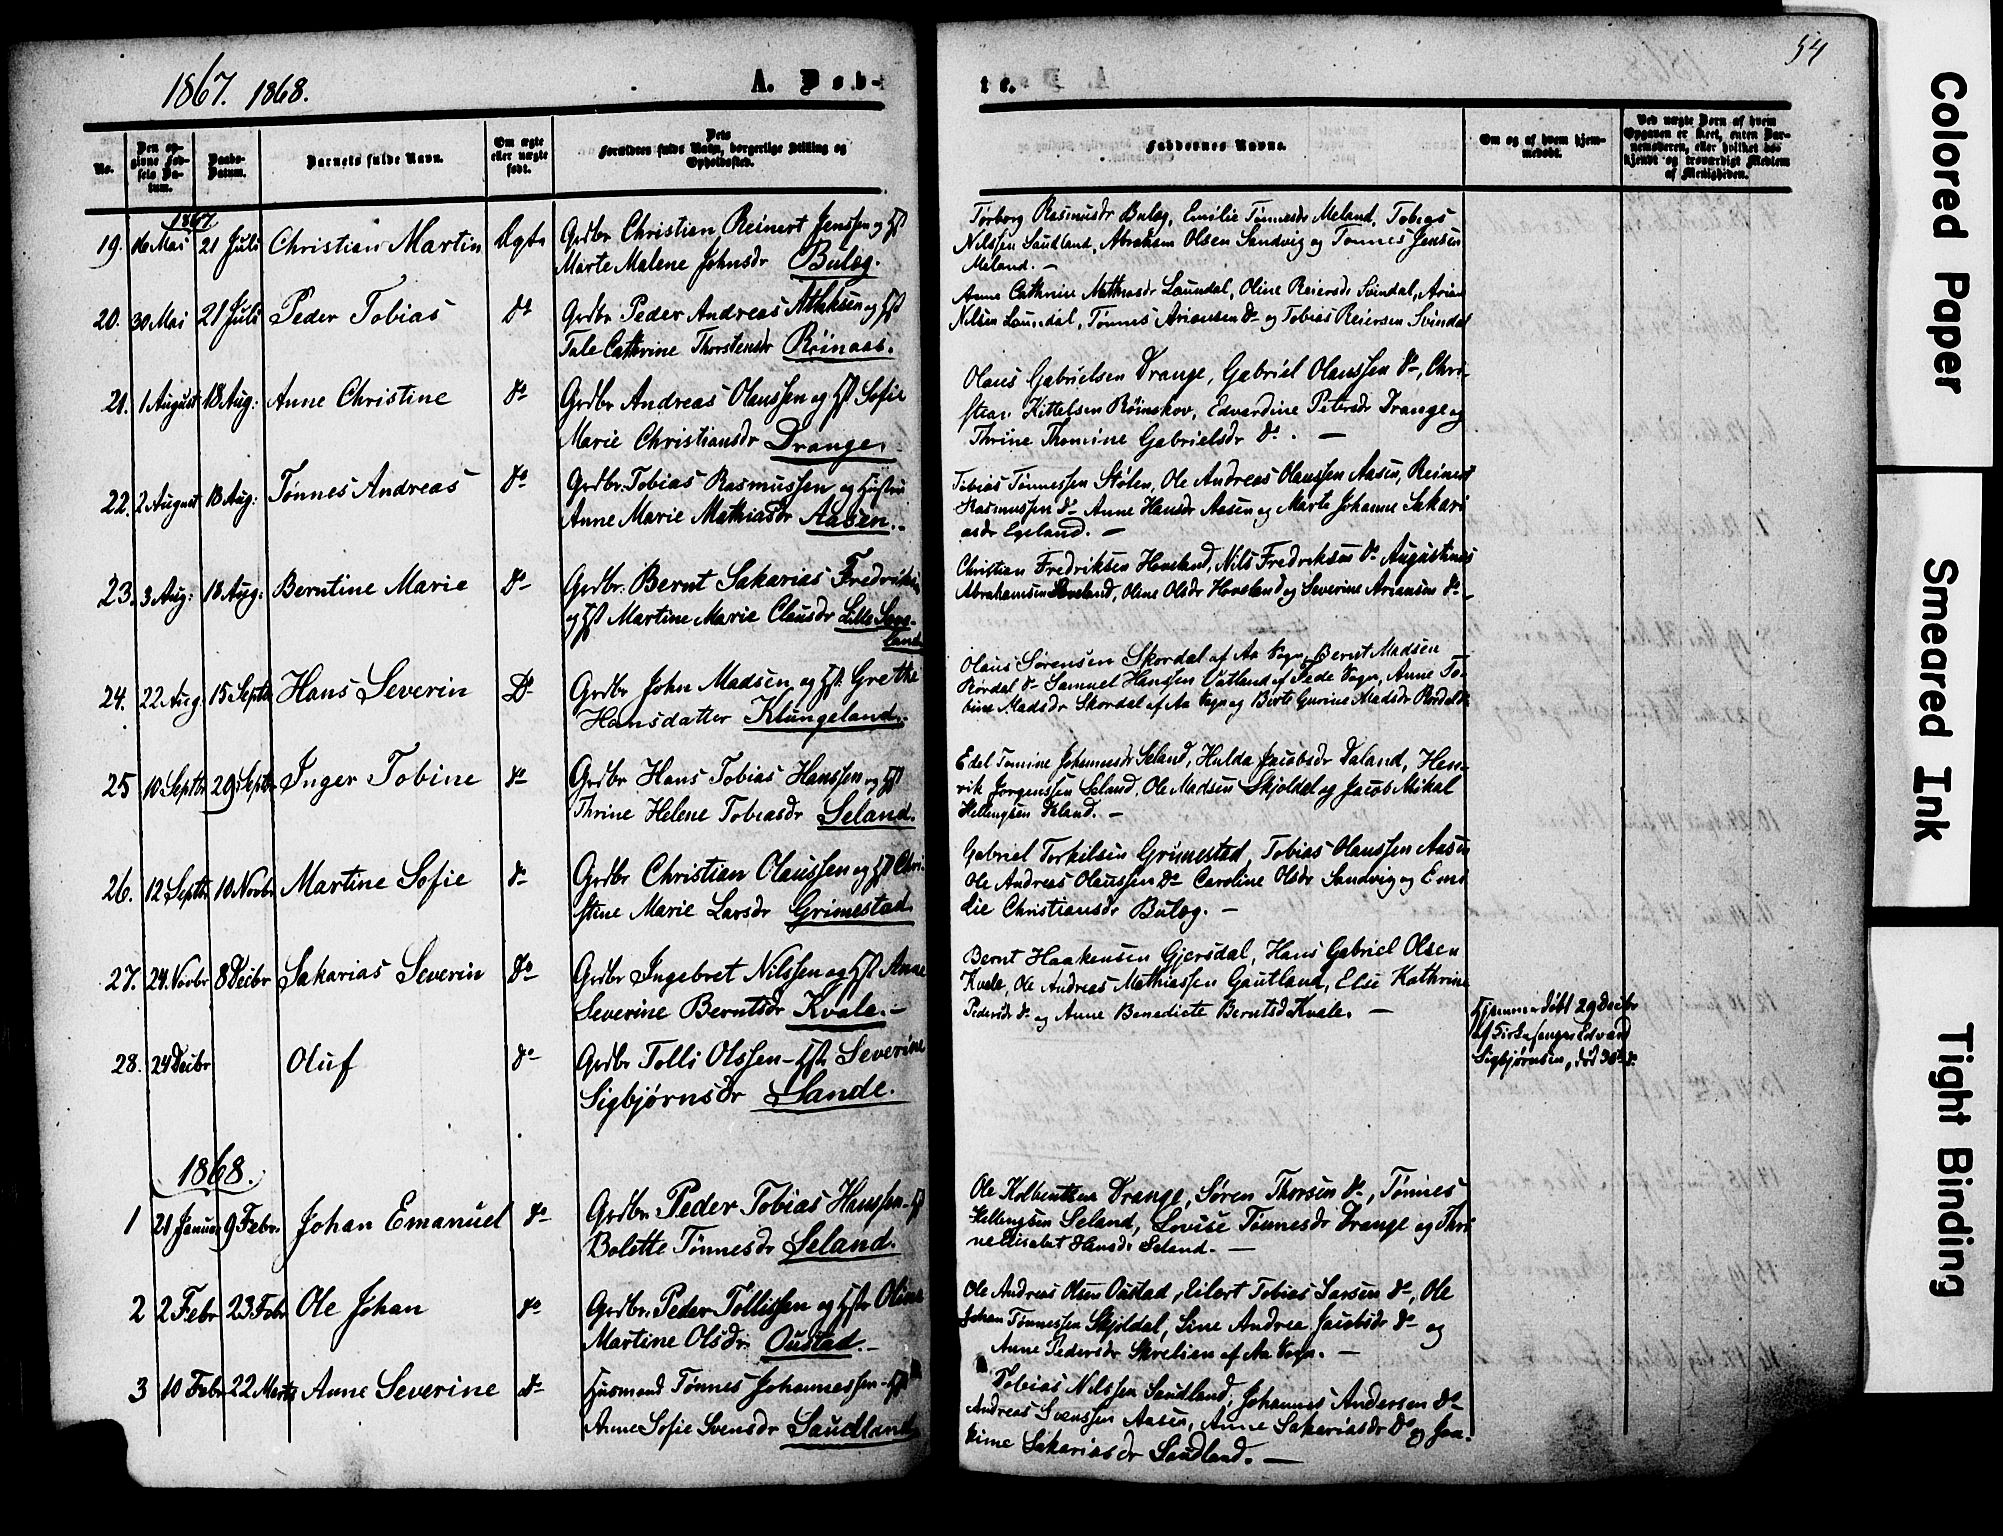 1867. 1868.
A. Døb-
te.
54
No.
Den op-
givne Fød-
sels Da-
tum.
Daabs-
Datum.
Barnets fulde Navn.
Om ægte
eller uægte
født.
Forældres fulde Navn, borgerlige Stilling og
Opholdssted.
Faddernes Navne.
Om og af hvem hjem-
medøbt.
Ved uægte Børn af hvem
Opgaven er skeet, enten Bar-
nemoderen, eller hvilket bekjendt
og troværdigt Medlem
af Menigheden.
1867
19. 16 Mai 21 Juli Christian Martin Ægte Grdbr Christian Reinert Jenssen og Hst
Marte Malene Johnsdr Bulæg.
Torborg Rasmusdr Bulæg, Emilie Tønnesdr Meland, Tobias
Nilssen Saudland, Abraham Olsen Sandvig og Tønnes Jensen
Meland. —
20. 30 Mai 21 Juli Peder Tobias Do Grdbr Peder Andreas Atlaksen og Hst
Tale Cathrine Thorstensdr Røinaas.
Anne Cathrine Mathiasdr Laundal, Oline Reiersdr Svindal, Arian
Nilsen Laundal, Tønnes Ariansen Do og Tobias Reiersen Svindal
21. 1 August 18 Aug: Anne Christine do Grdbr Andreas Olaussen og Hst Sofie
Marie Christiansdr Drange.
Olaus Gabrielsen Drange, Gabriel Olaussen do, Chri-
stian Kittelsen Røinskov, Edvardine Petersdr Drange og
Thrine Thomine Gabrielsdr do. —
22. 2 August 18 Aug: Tønnes Andreas do Grdbr. Tobias Rasmussen og Hustru
Anne Marie Mathiasdr Aasen.
Tobias Tønnessen Stølen, Ole Andreas Olaussen Aasen, Reinert
Rasmussen do Anne Hansdr Aasen og Marte Johanne Sakari
asdr Egeland. —
23. 3 Aug: 18 Aug: Berntine Marie do Grdbr. Bernt Sakarias Fredriksen
og Hst Martine Marie Clausdr Lille
land
Christian Fredriksen Hoveland, Nils Fredriksen do Augustinus
Abrahamsen Hoveland, Oline Olsdr Hoveland og Severine Ariansen do —
24. 22 Aug 15 Septbr Hans Severin Do Grdbr John Madsen og Hst. Grethe
Hansdatter Klungeland.
Olaus Sørensen Skordal af Aa Sogn, Bernt Madsen
Rørdal do Samuel Hanssen Vatland af Sogn, Anne To-
bine Madsdr Skordal af Aa Sogn og Berte Gurine Madsdr Rørdal do
25 10 Septbr 29 Septbr Inger Tobine do Grdbr Hans Tobias Hanssen og Hst
Thrine Helene Tobiasdr Seland.
Edel Tomine Johannesdr Seland, Hulda Jacobsdr Daland, Hen-
rik Jørgenssen Seland, Ole Madsen Skjoldal og Jacob Mikal
Hellengsen Seland. —
26. 12 Septbr 10 Novbr Martine Sofie do Grdbr Christian Olaussen og Hst Chri-
stine Marie Larsdr Grimestad.
Gabriel Torkilsen Grimestad, Tobias Olaussen Aasen
Ole Andreas Olaussen do Caroline Olsdr Sandvig og Emi
lie Christiansdr Bulæg. —
27. 24 Novbr 8 Decbr Sakarias Severin do Grdbr Ingebret Nilssen og Hst Anne
Severine Berntsdr Kvale. —
Bernt Haakensen Gjersdal, Hans Gabriel Olsen
Kvale, Ole Andreas Mathiassen Gautland, Elie Kathrine
Pedersdr do og Anne Benedicte Berntsd Kvale. —
28. 24 Decbr Oluf do Grdbr Tolli Olssen — Hst Severine
Sigbjørnsdr Sande.
Hjemmedøbt 29 Decbr
af Kirkesanger Edvard
Sigbjørnsen, død 30te do
1868.
1 21 Januar 9 Febr. Johan Emanuel do Grdbr Peder Tobias Hanssen — Hst
Bolette Tønnesdr Seland.
Ole Kolbentsen Drange, Søren Thorsen do, Tønnes
Hellengsen Seland, Lovise Tønnesdr Drange og Thri
ne Elisabet Hansdr Seland. —
2 2 Febr 23 Febr Ole Johan do Grdbr. Peder Tollissen og Hst Oline
Martine Olsdr. Oustad. —
Ole Andreas Olsen Oustad, Eilert Tobias Larsen do, Ole
Johan Tønnessen Skjoldal, Line Andrea Jacobsdr do og
Anne Pedersdr Skrelian af Aa Sogn. —
3 10 Febr 22 Marts Anne Severine do Husmand Tønnes Johannessen — Hst
Anne Sofie Svensdr Saudland
Tobias Nilssen Saudland, Johannes Andersen do
Andreas Svenssen Aasen, Anne Sakariasdr do og Joa-
kime Sakariasdr Saudland. —
Colored Paper
Smeared Ink
Tight Binding